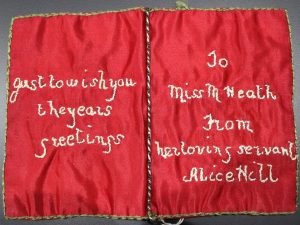 Just to wish you
the years
greetings
To
Miss M Heath
From
her loving servant
Alice Hill